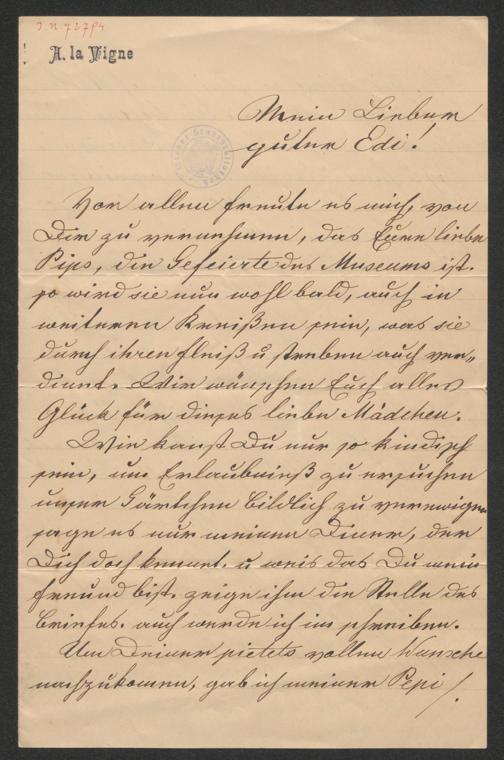 I.N. 72794
A. la Vigne
Mein Lieber
guter Edi!
Vor allem freute es mich, von
Dir zu vernehmen, das Euere liebe
Pips, die Gefeierte des Museums ist.
so wird sie nun wohl bald, auch in
weiteren Kreißen sein, was sie
durch ihren Fleiß u streben auch ver„
dient. Wir wünschen Euch alles
Glück für dieses liebe Mädchen.
Wie kanst Du nur so kindisch
sein, um Erlaubniß zu ersuchen
unser Gärtchen bildlich zu verewigen
sage es nur meinem Diener, der
Dich doch kennt. u weis das Du mein
Freund bist. zeige ihm die Stelle des
Briefes. auch werde ich im schreiben.
Um Deinem pietets vollen Wunsche
nachzukomen, gab ich meiner Pepi /.